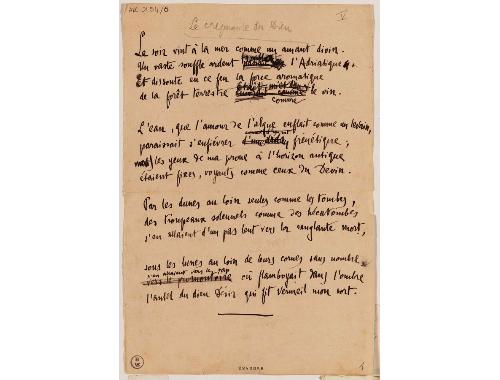 V
Le soir vint à la mer comme un amant divin.
Un vaste souffle ardent l'Adriatique.
Et dissoute en ce feu la force aromatique
de la forêt terrestre était comme le vin.
comme
L'eau, que l'amour de l'algue enflait comme un levain,
paraissait s'enfiévrer frénétique;
les yeux de ma proue à l'horizon antique
étaient fixes, voyants comme ceux du Devin.
Par les dunes au loin seules comme les tombes,
des troupeaux solennels comme des hécatombes
s'en allaient d'un pas lent vers la sanglante mort,
sous les lunes au loin de leurs cornes sans nombre
s'en allaient vers les
vers le promontoire où flamboyait dans l'ombre
l'autel du dieu Désir qui fit vermeil mon sort.